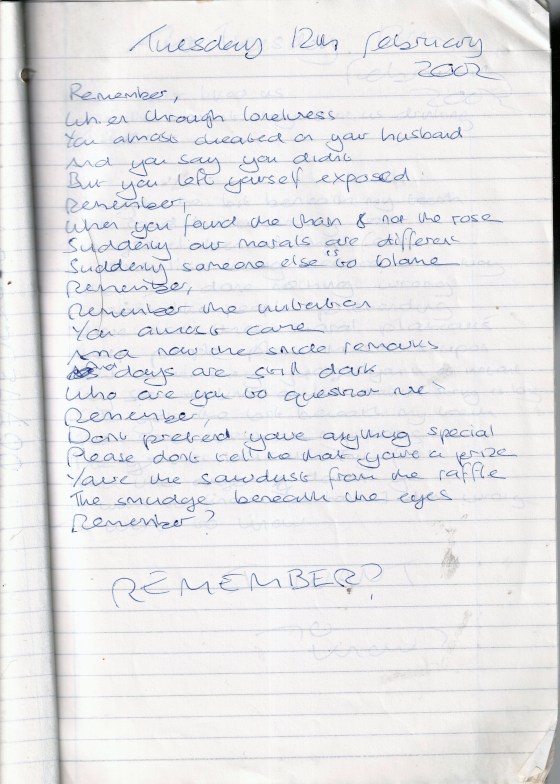 Tuesday 12th February
2002
Remember,
When through loneliness
You almost cheated on your husband
And you say you didnt
But you left yourself exposed
Remember,
When you found the thorn & not the rose
Suddenly our morals are different
Suddenly someone else is to blame
Remember,
Remember the
You almost came
And now the snide remarks
And days are still dark
Who are you to question me
Remember,
Dont pretend youve anything special
Please dont tell me that youve a prize
Youve the sawdust from the raffle
The smudge beneath the eyes
Remember?
REMEMBER?